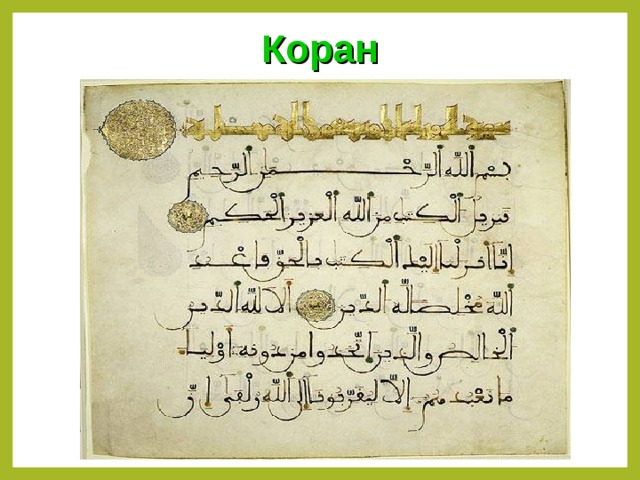 Коран
بسم الله الرحمن الرحيم
تنزيل الكتب من الله العزيز الحكيم
انا انزلنا اليك الكتب بالحق فاعبد
الله مخلصا له الدين الا لله الدين
الخالص والذين اتخذوا من دونه اوليا
ما نعبدهم الا ليقربونا الى الله زلفى ان